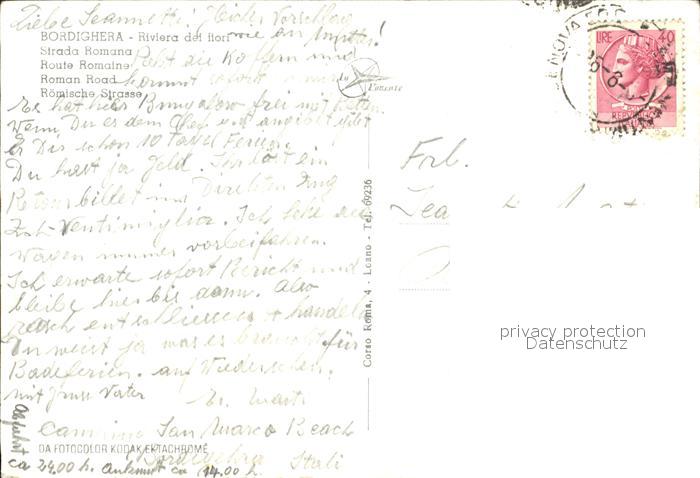 Liebe Jeannette! Vorschlag
wie am
BORDIGHERA - Riviera dei fiori
Strada Romana
Route Romaine
Roman Road
Römische Strasse
Packt die Koffern und
kommt sofort
Es hat hier Bungalow frei mit Betten.
Wenn Du es dem Chef angibst gibt
Er Dir schon 10 Tage Ferien.
Du hast ja Geld. Ihr löst ein
Retourbillet im Direkten Zug
Zch - Ventimiglia. Ich sehe die
Wagen immer vorbeifahren.
Ich erwarte sofort Bericht und
bleibe hier bis dann. Also
rasch entschliessen + handeln
Du weist ja was es braucht für
Badeferien. auf Wiedersehen.
mit Gruss Vater
Camping San Marco Beach
DA FOTOCOLOR KODAK EKTACHROME
Bordighera Itali
Abfahrt
ca 24.00 h. Ankunft ca 14.00 h.
Corso Roma, 4 - Loano - Tel. 69236
GENOVA
LIRE 40
Frl.
privacy protection
Datenschutz